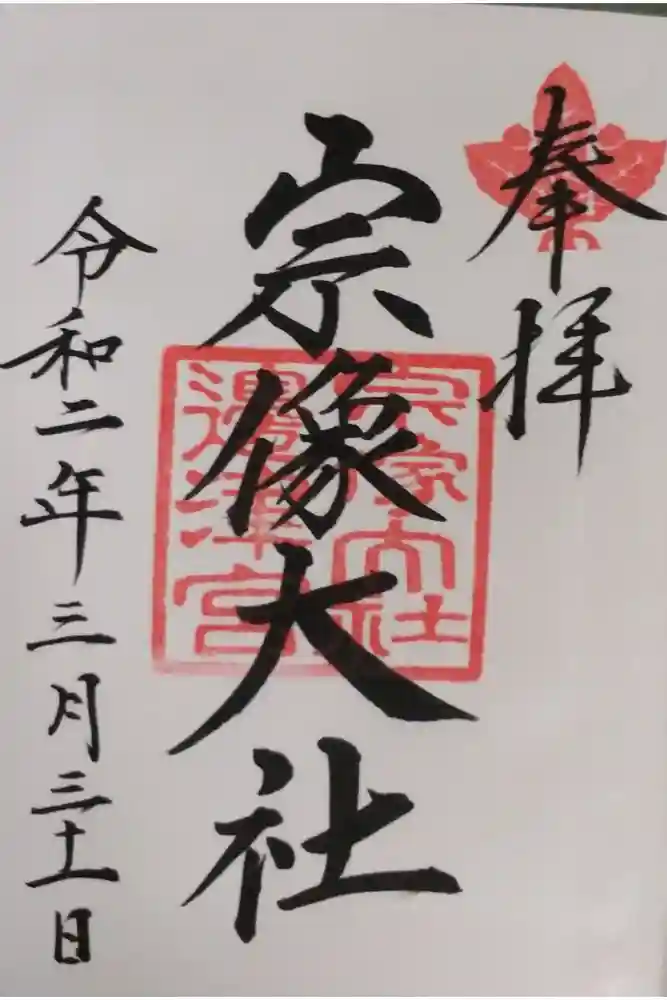 奉拝
宗像大社
宗像大社
邊津宮
令和二年三月三十一日